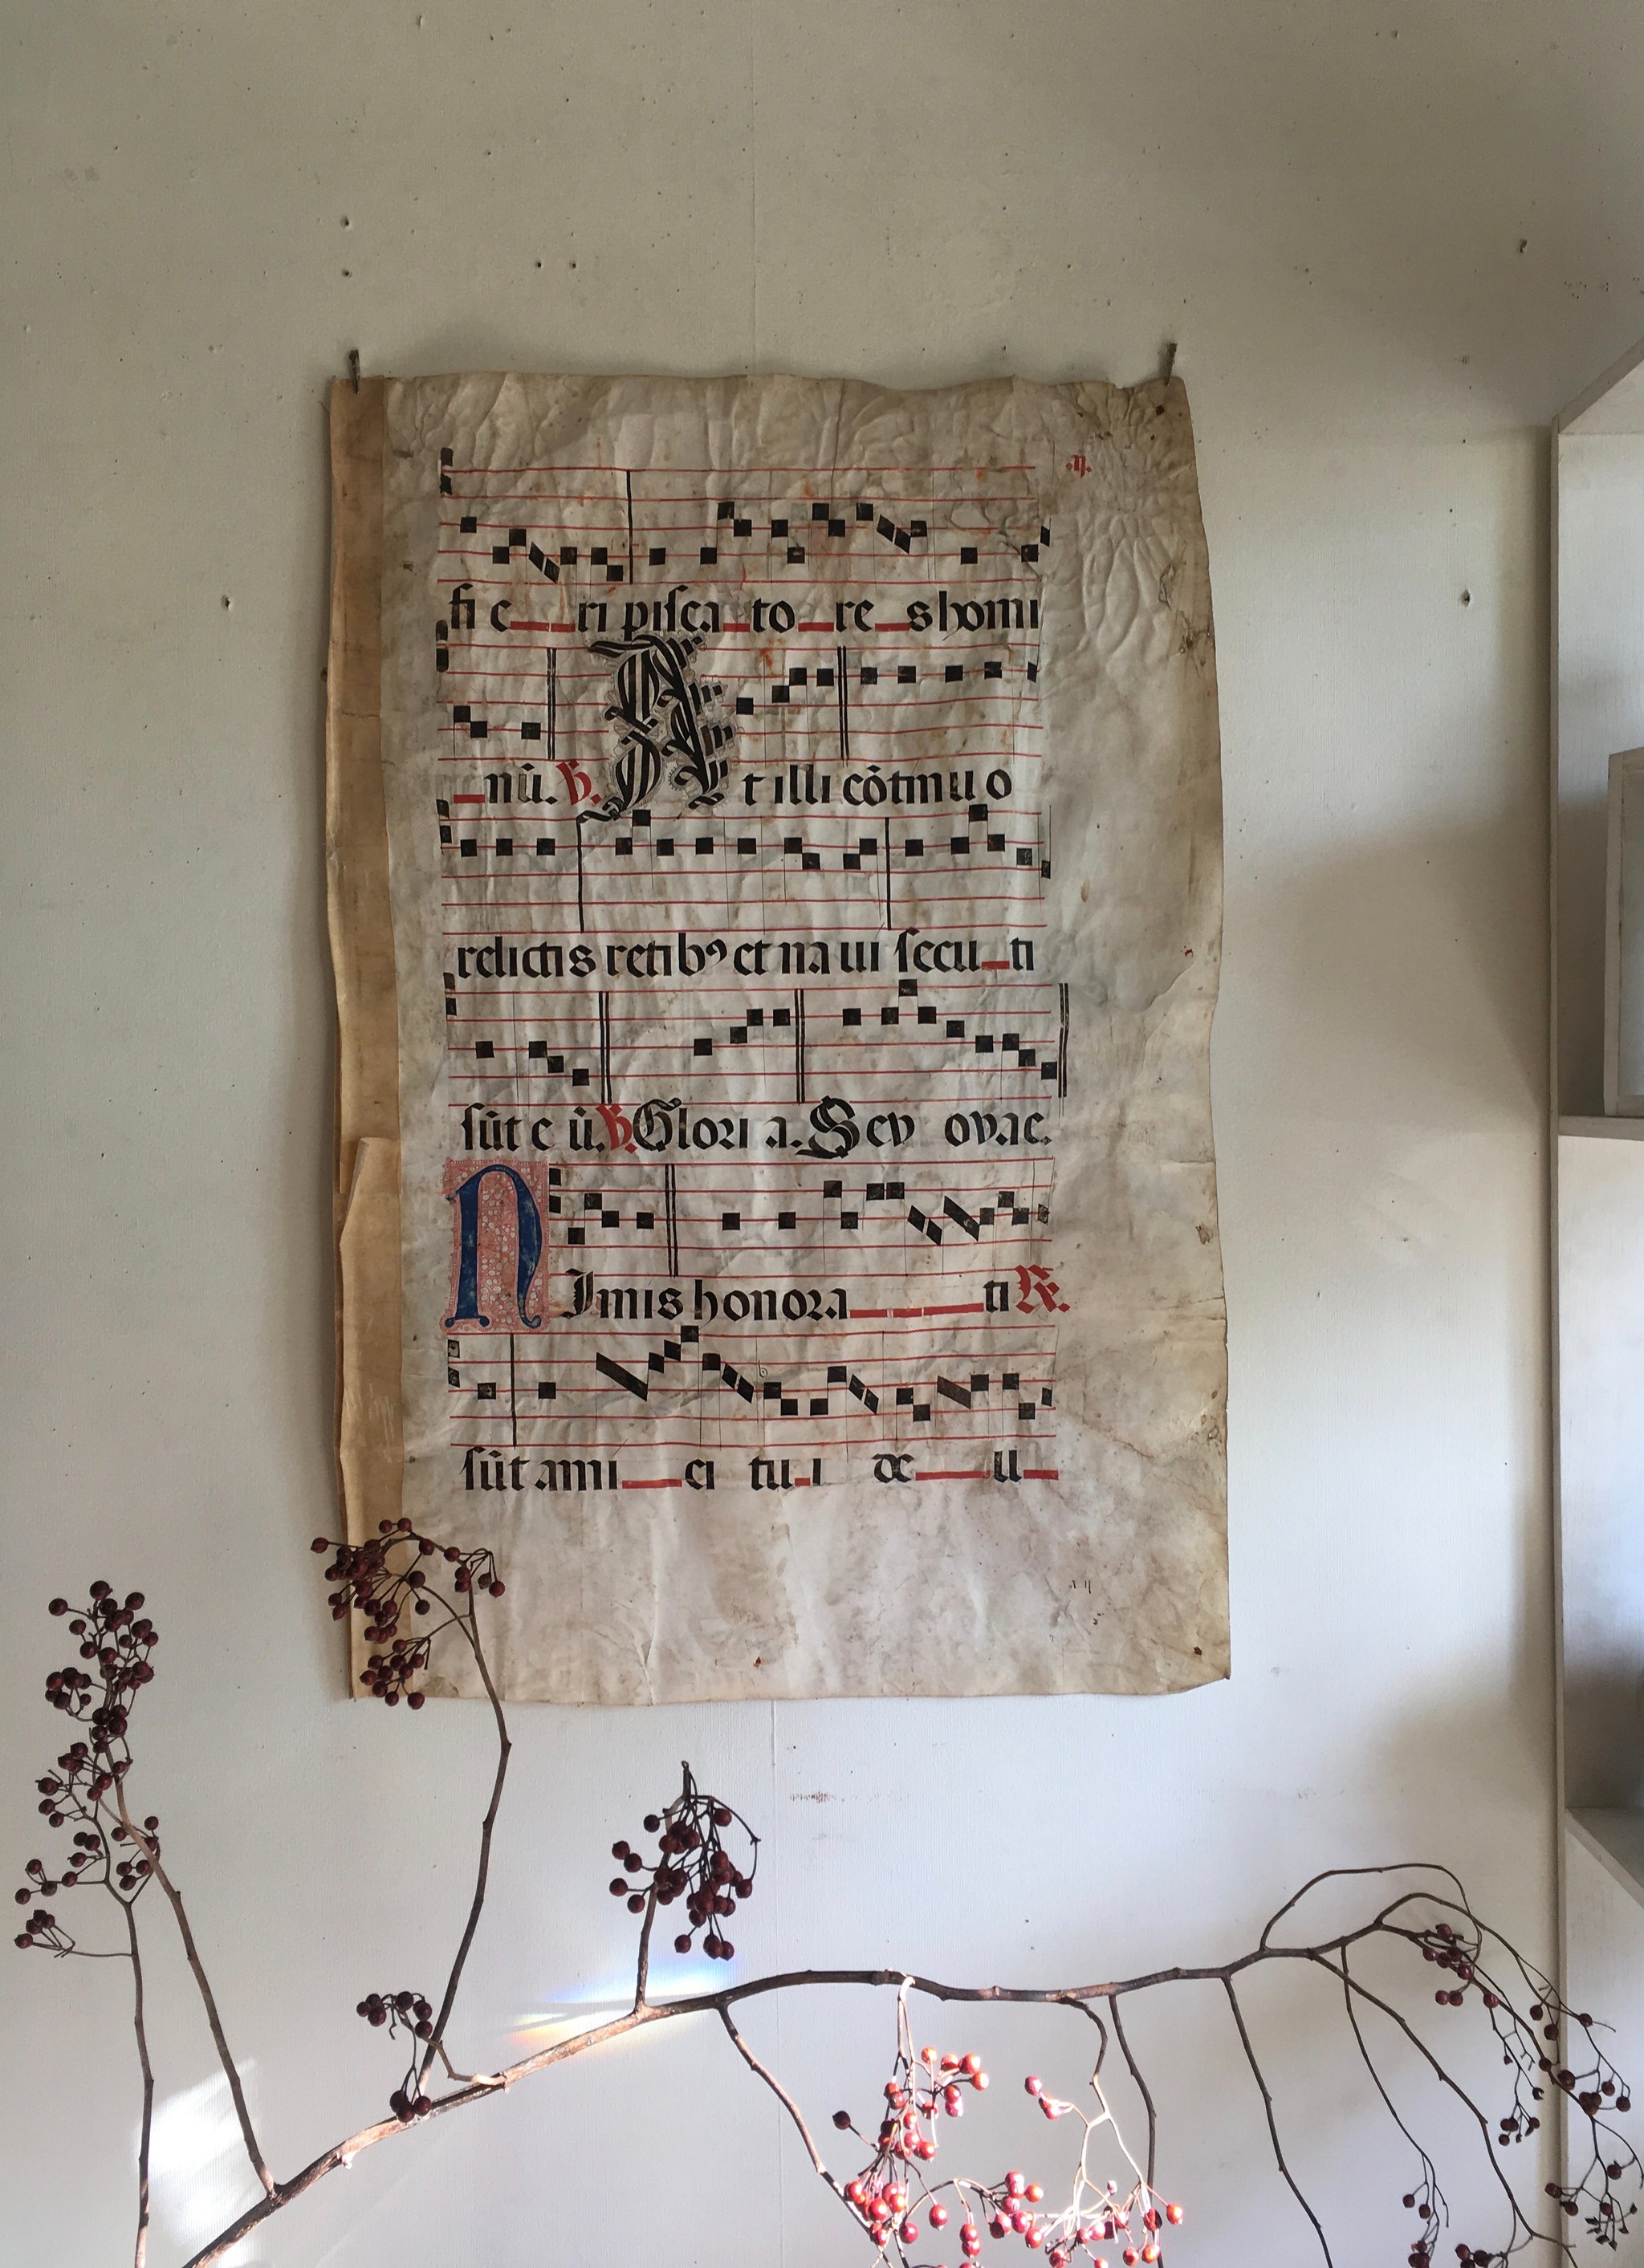 .η.
fi e ri piſca to re s homi
nū. ꝟ. At illi cōtinu o
relictis retibꝰ et na ui ſecu ti
ſūt e ū. ꝟ. Glori a. Sev ovae.
NImis honora ti ℟.
ſūt ami ci tu i de u